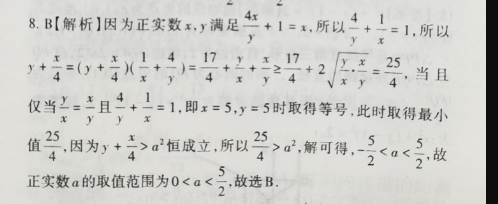 8. B【解析】因为正实数x,y满足4x/y+1=x,所以4/y+1/x=1,所以
y+x/4=(y+x/4)(1/x+4/y)=17/4+y/x+x/y≥17/4+2√(y/x·x/y)=25/4,当且
仅当y/x=x/y且4/y+1/x=1,即x=5,y=5时取得等号,此时取得最小
值25/4,因为y+x/4>a²恒成立,所以25/4>a²,解可得,-5/2<a<5/2,故
正实数a的取值范围为0<a<5/2,故选B.